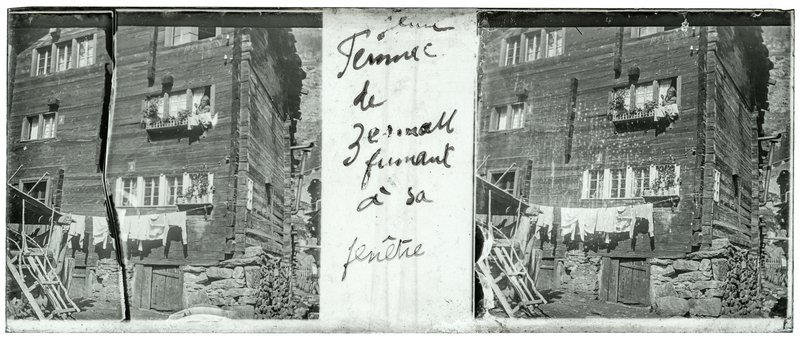 Femme
de
Zermatt
fumant
à sa
fenêtre